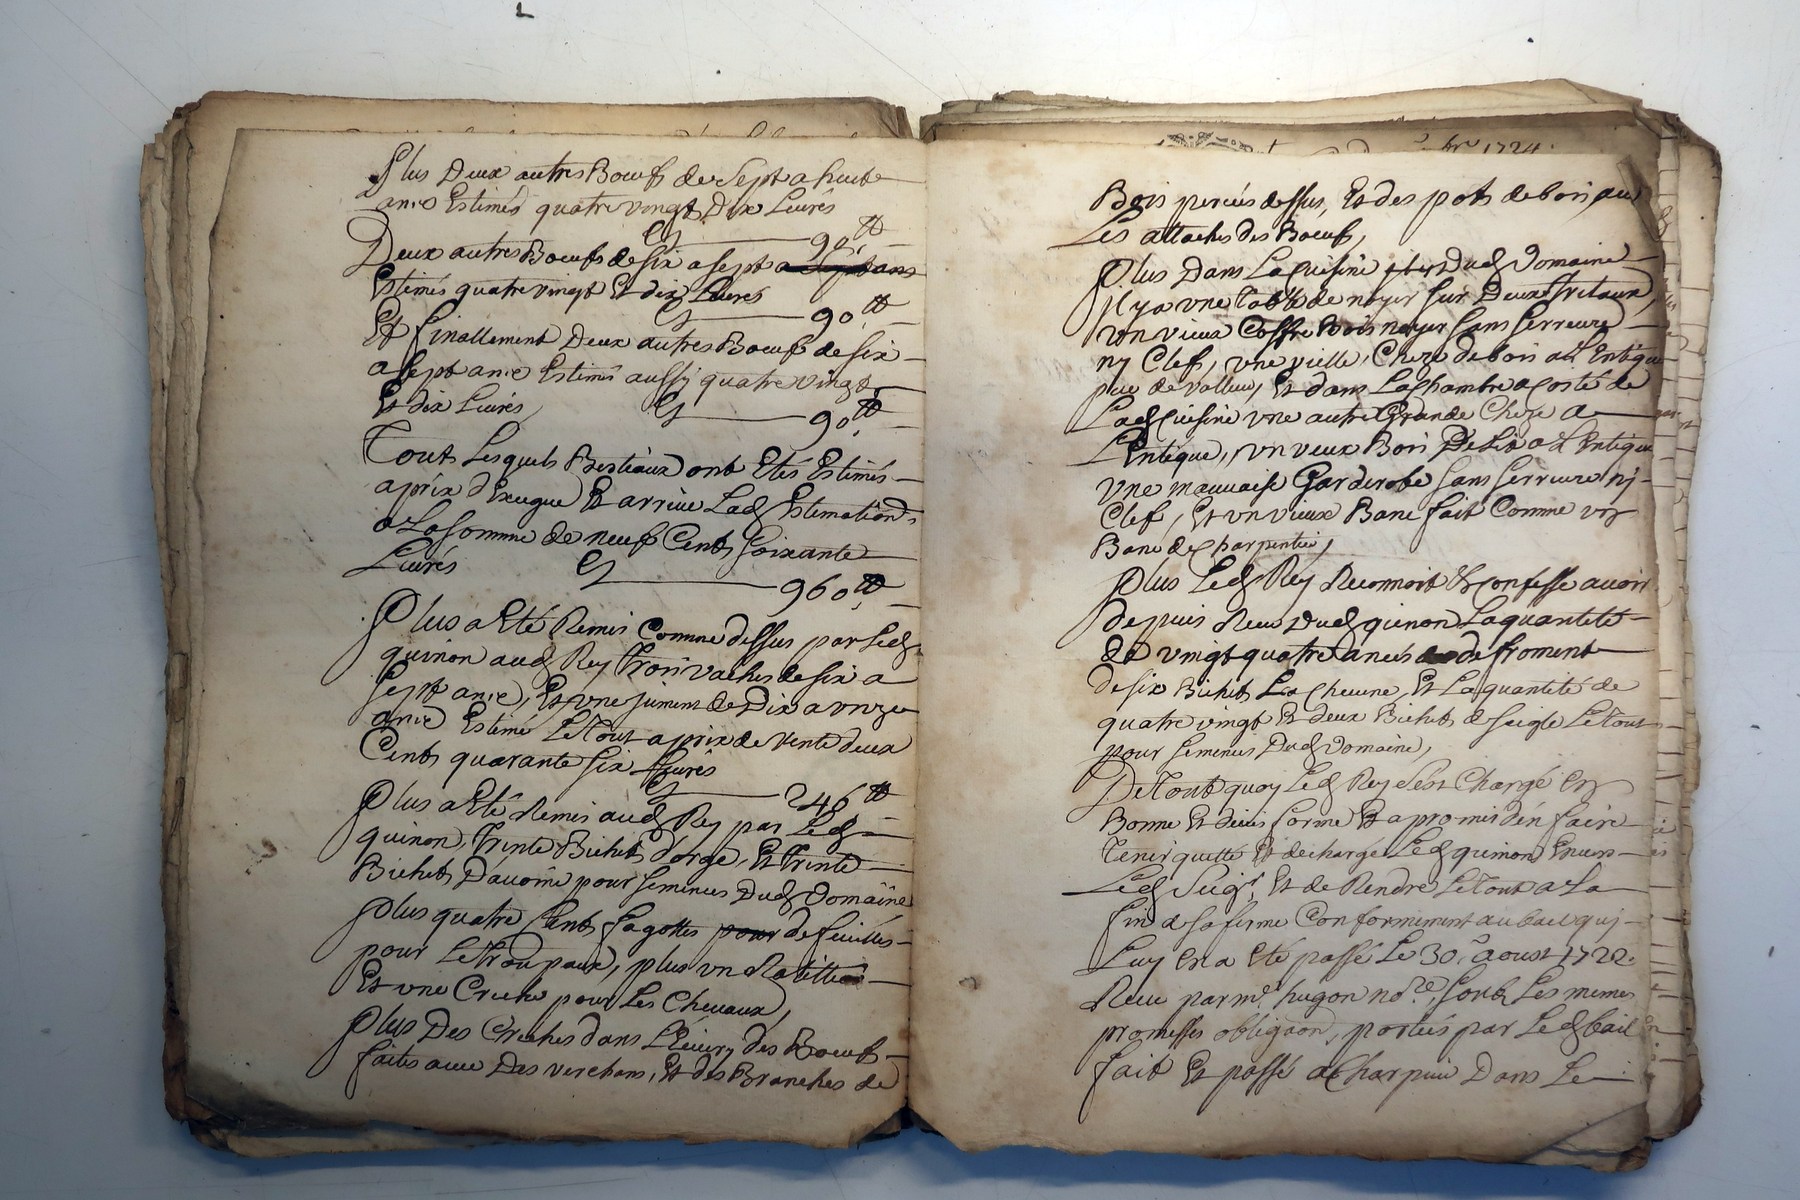 Plus Deux autres Boeufs de Sept a huit
année Estimés quatre vingt Dix Livres
Cy 90 ₶
Deux autres Boeufs de six a sept a sept ans
Estimés quatre vingt Et dix Livres
Cy 90 ₶
Et finallement Deux autres Boeufs de six
a sept année Estimés aussy quatre vingt
Et dix Livres Cy 90 ₶
Tout Lesquels Bestiaux ont Etés Estimés
a prix d'Exegue Et arrive Lad Estimation
a La somme de neuf Cents soixante
Livres Cy 960 ₶
Plus a Eté Remis Comme dessus par Led
quinon aud Rey Trois vaches de six a
sept année, Et une jument de Dix a unze
année Estimé Le Tout a prix de vente deux
Cents quarante six Livres
Cy 246 ₶
Plus a Eté Remis aud Rey par Led
quinon, Trente Bichets d'orge, Et Trente
Bichets D'avoine pour semences Dud Domaine
Plus quatre Cents fagottes pour de feuilles
pour Le Troupaux, plus un Ratellier
Et une Creche pour Les Chevaux,
Plus Des Creches dans L'Ecury des Boeufs
faites avec Des verchans, Et des Branches de
bre 1724.
Bois percées dessus, Et des pots de bois pour
Les attaches des Boeufs,
Plus Dans La Cuisine Dud Domaine
Il y a une Table de noyer sur Deux Tretaux,
un vieux Coffre Bois noyer sans serreure
ny Clef, une vielle Cheze de bois a L'Entique
peu de valleur, Et dans La Chambre a costé de
Lad Cuisine une autre Grande Cheze a
L'Entique, un veux Bois De Lit a L'Entique
une mauvaise Garderobe sans serreure ny
Clef, Et un vieux Banc fait Comme un
Banc de charpentier,
Plus Led Rey Reconnoit Et Confesse avoir
depuis Receu Dud quinon La quantité
de vingt quatre anées de froment
de six Bichets La Cheune, Et La quantité de
quatre vingt Et deux Bichets de seigle Le Tout
pour semences Dud Domaine,
De Tout quoy Led Rey s'est Chargé En
Bonne Et deüe forme Et a promis d'en faire
Tenir quitte Et decharge Led quinon Envers
Led Seigr. Et de Rendre Le Tout a La
fin de sa ferme Conformement au bail quj
Luy En a Eté passé Le 30e aoust 1722.
Receu par me. hugon nore. sous Les memes
promesses obligaon, portés par Led bail
fait Et passé a Charpieu Dans Le